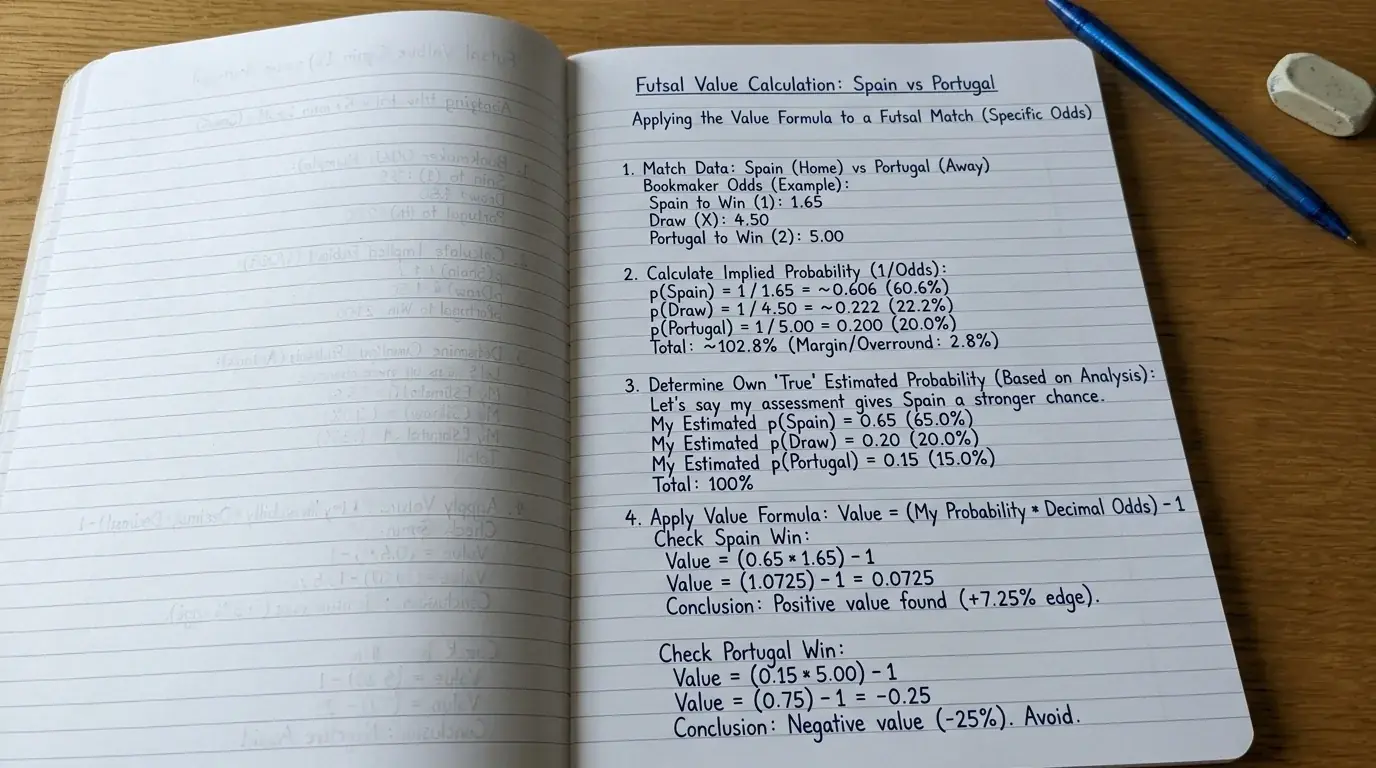 Futsal Value Calculation: Spain vs Portugal
Applying the Value Formula to a Futsal Match (Specific Odds)
1. Match Data: Spain (Home) vs Portugal (Away)
Bookmaker Odds (Example):
Spain to Win (1): 1.65
Draw (X): 4.50
Portugal to Win (2): 5.00
2. Calculate Implied Probability (1/Odds):
p(Spain) = 1 / 1.65 = ~0.606 (60.6%)
p(Draw) = 1 / 4.50 = ~0.222 (22.2%)
p(Portugal) = 1 / 5.00 = 0.200 (20.0%)
Total: ~102.8% (Margin/Overround: 2.8%)
3. Determine Own 'True' Estimated Probability (Based on Analysis):
Let's say my assessment gives Spain a stronger chance.
My Estimated p(Spain) = 0.65 (65.0%)
My Estimated p(Draw) = 0.20 (20.0%)
My Estimated p(Portugal) = 0.15 (15.0%)
Total: 100%
4. Apply Value Formula: Value = (My Probability * Decimal Odds) - 1
Check Spain Win:
Value = (0.65 * 1.65) - 1
Value = (1.0725) - 1 = 0.0725
Conclusion: Positive value found (+7.25% edge).
Check Portugal Win:
Value = (0.15 * 5.00) - 1
Value = (0.75) - 1 = -0.25
Conclusion: Negative value (-25%). Avoid.